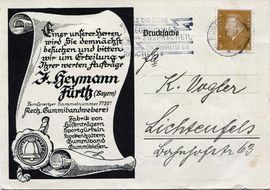 Einer unserer Herren
wird Sie demnächst
besuchen und bitten
wir um Erteilung
Ihrer werten Aufträge
J. Heymann
Fürth (Bayern)
Fernsprecher Sammelnummer 71221
Mech. Gummibandweberei
Fabrik von
Hosenträgern
Sportgürteln
Sockenhaltern
Gummiband
Gummikordeln
Drucksache
K. Vogler
Lichtenfels
Bahnhofstr 63